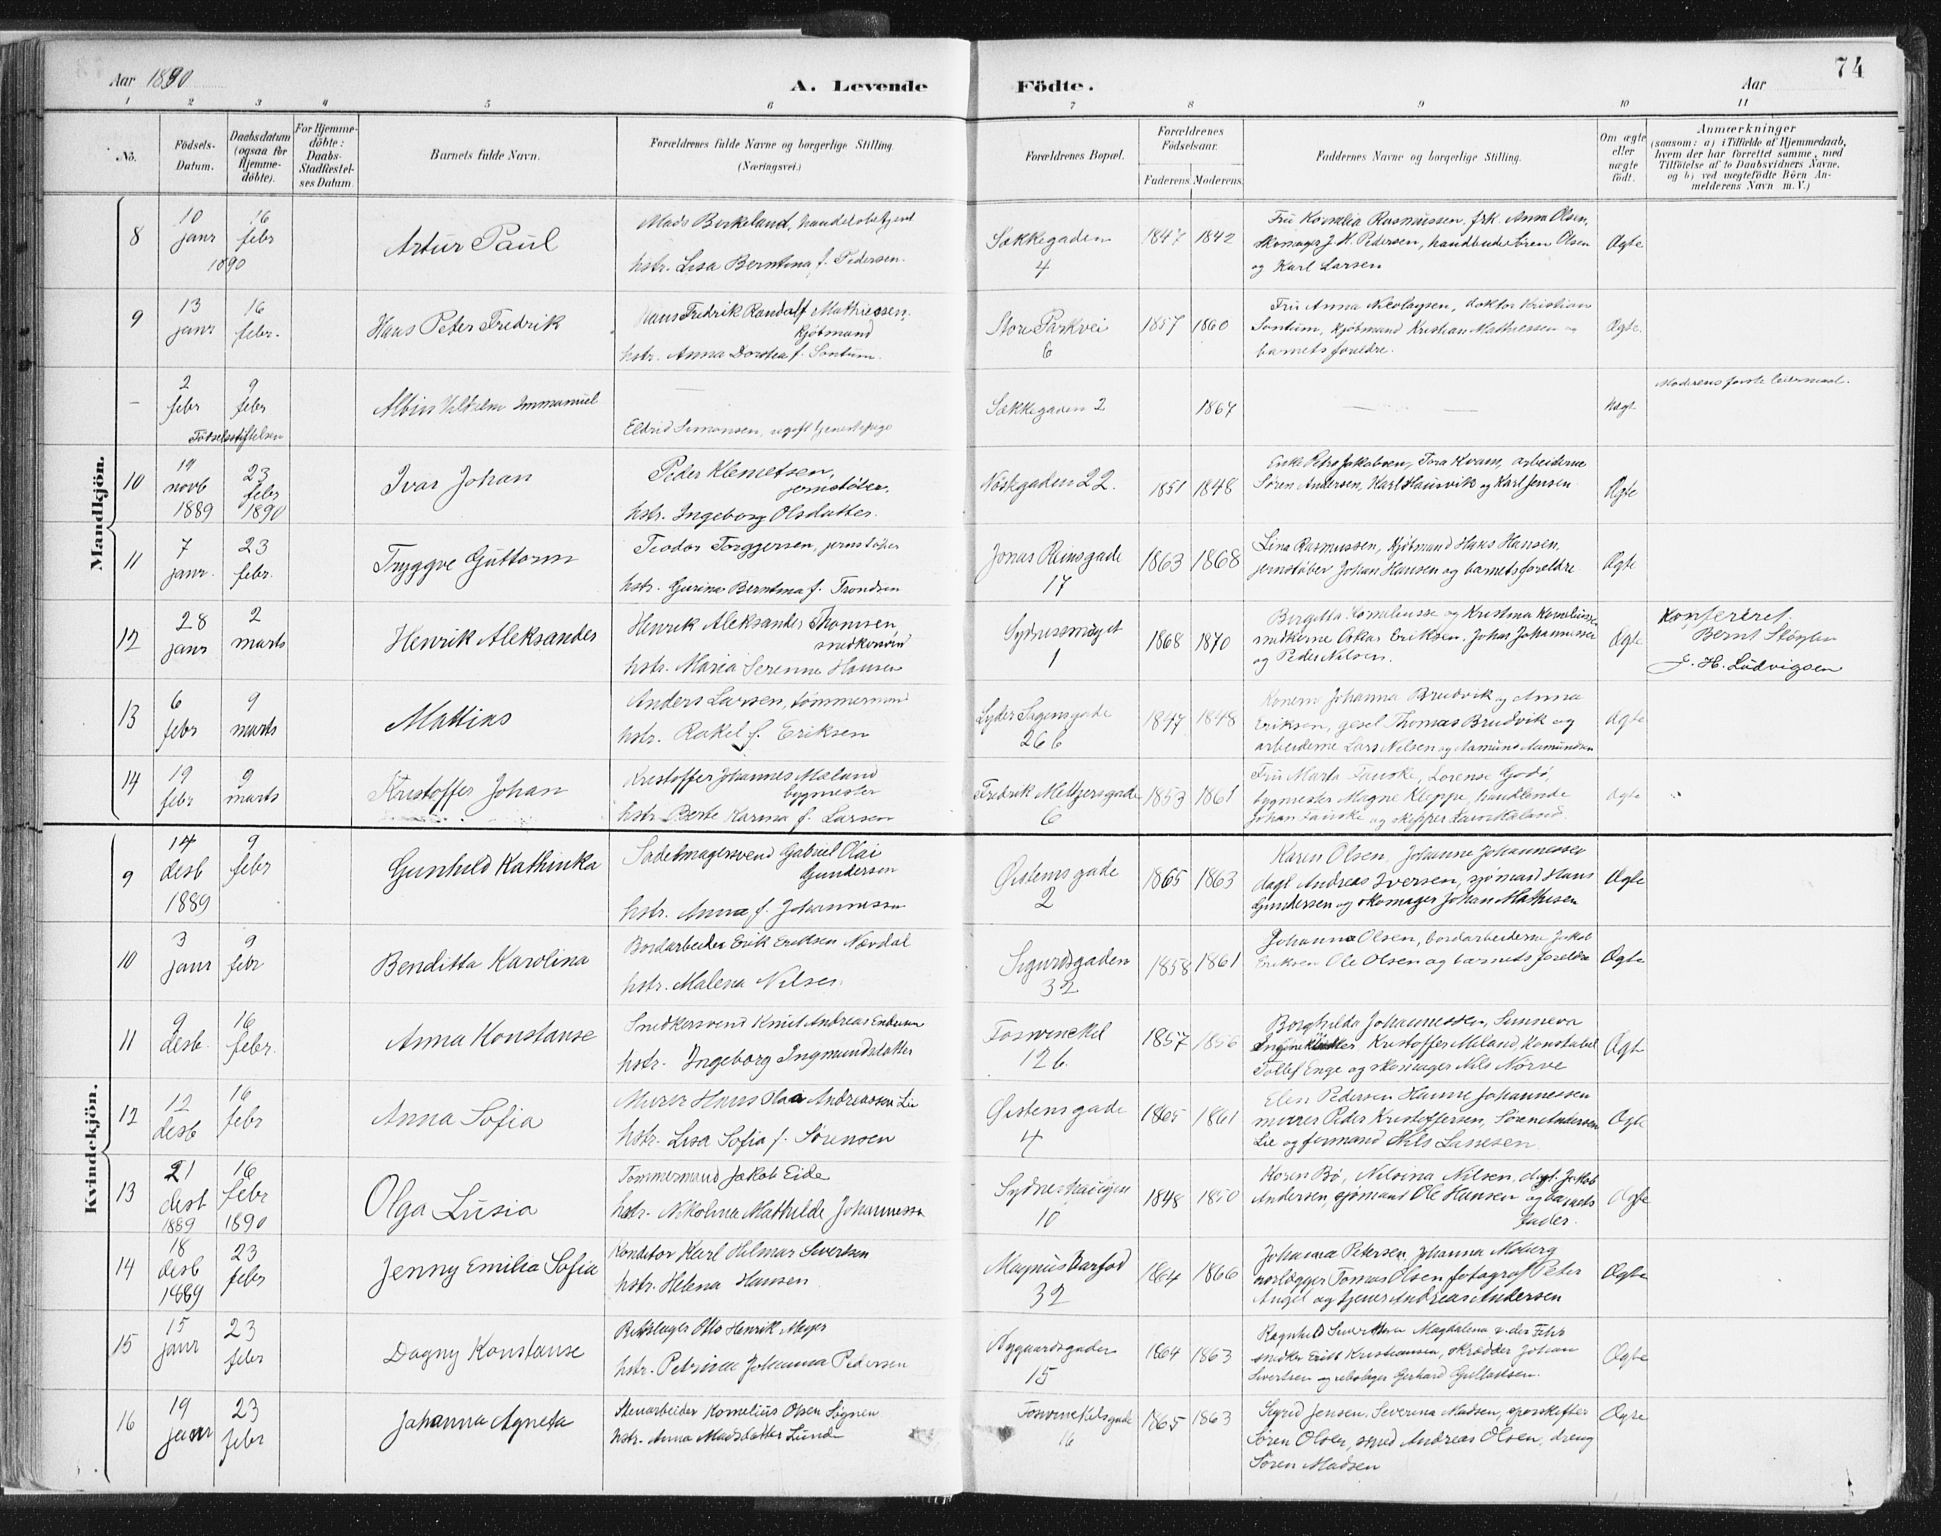 Aar 1890
A. Levende
Födte.
Aar
74
1 2 3 4 5 6 7 8 9 10 11
No.
Födsels-
Datum.
Daabsdatum
(ogsaa for
Hjemme-
döbte).
For Hjemme-
döbte:
Daabs-
Stadfæstel-
ses Datum.
Barnets fulde Navn.
Forældrenes fulde Navne og borgerlige Stilling.
(Næringsvei.)
Forældrenes Bopæl.
Forældrenes
Födselsaar.
Faderens. Moderens.
Faddernes Navne og borgerlige Stilling.
Om ægte
eller
uægte
födt.
Anmærkninger
(saasom: a) i Tilfælde af Hjemmedaab,
hvem der har forrettet samme, med
Tilföielse af to Daabsvidners Navne,
og b) ved uægtefödte Börn An-
melderens Navn m. V.)
Mandkjön.
8
10 janr
16 febr
1890
Artur Paul
Mads Birkeland, handelsbetjent
hstr. Lisa Berntina f. Pedersen.
Sækkegaden
4
1847 1842
Fru Kornelia Rasmussen, frk. Anna Olsen,
skomager J. K. Pedersen, handbude Søren Olsen
og Karl Larsen
Ægte
9
13 janr
16 febr.
Hans Peter Fredrik
Hans Fredrik Randulf Mathiessen,
kjøtmand
hstr. Anna Dorthea f. Sontum.
Store Parkvei
6
1857 1860
Fru Anna Nicolaysen, doktor Kristian
Sontum, kjøtmand Kristian Mathiessen og
barnets foreldre.
Ægte
2 febr
9 febr
Fødselsstiftelsen
Albin Vilhelm Immanuel
Eldrid Simonsen, ugift tjenestepige
Sækkegaden 2
1867
Uægte
Moderens første leiermaal.
10
19 novb 1889
23 febr 1890
Ivar Johan
Peder Klemetsen,
jernstøber,
hstr. Ingeborg Olsdatter.
Nøstegaden 22.
1851 1848
Enke Petra Jakobsen, Tora Kvam, arbeiderne
Søren Andersen, Karl Hausvik og Karl Jensen
Ægte
11
7 janr.
23 febr.
Tryggve Guttorm
Teodor Torggersen, jernstøber
hstr. Gurina Berntina f. Trondsen
Jonas Reinsgade
17
1863 1868
Lina Rasmussen, kjøtmand Hans Hansen,
jernstøber Johan Hansen og barnets foreldre
Ægte
12
28 janr
2 marts
Henrik Aleksander
Henrik Aleksander Thomsen
snedkersvend
hstr. Maria Serenne Hansen
Sydnessmuget
1
1868 1870
Birgitta Korneliusse og Kristina Korneliusse
snedkerne Oskar Eriksen, Johan Johannessen
og Peder Nilsen.
Ægte
Konfereret
J. H. Ludvigsen
13
6 febr
9 marts
Mattias
Anders Larsen, tømmermand
hstr. Rakel f. Eriksen
Lyder Sagensgade
26 b
1847 1848
Konerne Johanna Brudvik og Anna
Eriksen, gesel Thomas Brudvik og
arbeiderne Lars Nilsen og Aamund Aamundsen
Ægte
14
19 febr
9 marts
Kristoffer Johan
Kristoffer Johannes Mæland
bygmester
hstr. Berte Karina f. Larsen
Fredrik Meltzersgade
6
1853 1861
Fru Marta Fanske, Lorense Godø,
bygmester Magne Kleppe, handlende
Johan Fanske og skipper Lars Mæland.
Ægte
Kvindekjön.
9
14 desb 1889
9 febr
Gunhild Kathinka
Sadelmagersvend Gabriel Olai
Gundersen
hstr. Anna f. Johannessen
Øistensgade
2
1865 1863
Karen Olsen, Johanne Johannessen
dagl. Andreas Iversen, sjømand Hans
Gundersen og skomager Johan Mathisen
Ægte
10
3 janr
9 febr
Benditta Karolina
Bordarbeider Erik Eriksen Nævdal
hstr. Malena Nilsen.
Sigurdsgaden
32
1858 1861
Johanna Olsen, bordarbeiderne Jakob
Eriksen Ole Olsen og barnets foreldre
Ægte
11
9 desb.
16 febr.
Anna Konstanse
Snedkersvend Knut Andreas Endresen
hstr. Ingeborg Ingmundsdatter
Tosvinckel
12 b.
1857 1856
Borghilda Johannessen, Sunneva
Kristoffer Meland, konstabel
Tollef Enge og skomager Nils Nørve
Ægte
12
12 desb
16 febr
Anna Sofia
Murer Hans Olaa Andreassen Lie
hstr. Lisa Sofia f. Sørensen
Øistensgade
4
1865 1861
Elen Pedersen Hanne Johannessen
murer Peder Kristoffersen, Søren Andersen
Lie og formand Nils Larsen
Ægte
13
21 desb 1889
16 febr 1890
Olga Lusia
Tømmermand Jakob Eide
hstr. Nikolina Mathilde Johannessen
Sydneshaugen
10
1848 1850
Karen Bø, Nilsina Nilsen, dagl. Jakob
Andersen, sjømand Ole Hansen og barnets
fader.
Ægte
14
18 desb 1889
23 febr
Jenny Emilia Sofia
Konditor Karl Hilmar Sivertsen
hstr. Helena Hansen
Magnus Barfod
32
1864 1866
Johanna Petersen, Johanna Moberg
Tomas Olsen fotograf Peter
Angel og tjener Andreas Andersen
Ægte
15
15 janr
23 febr
Dagny Konstanse
Otto Henrik Meyer
hstr. Petrina Johanna Pedersen
Nygaardsgaden
15
1864 1863
Ragnhild Sivertsen Magdalena
snedker Erik Kristiansen, skrædder Johan
Sivertsen og rebslager Gerhard
Ægte
16
19 janr
23 febr
Johanna Agneta
Stenarbeider Kornelius Olsen Søgnen
hstr. Anna Madsdatter Lunde
Tosvinckelsgade
16
1865 1863
Sigrid Jensen, Severina Madsen, sporskifter
Søren Olsen, smed Andreas Olsen, dreng
Søren Madsen
Ægte